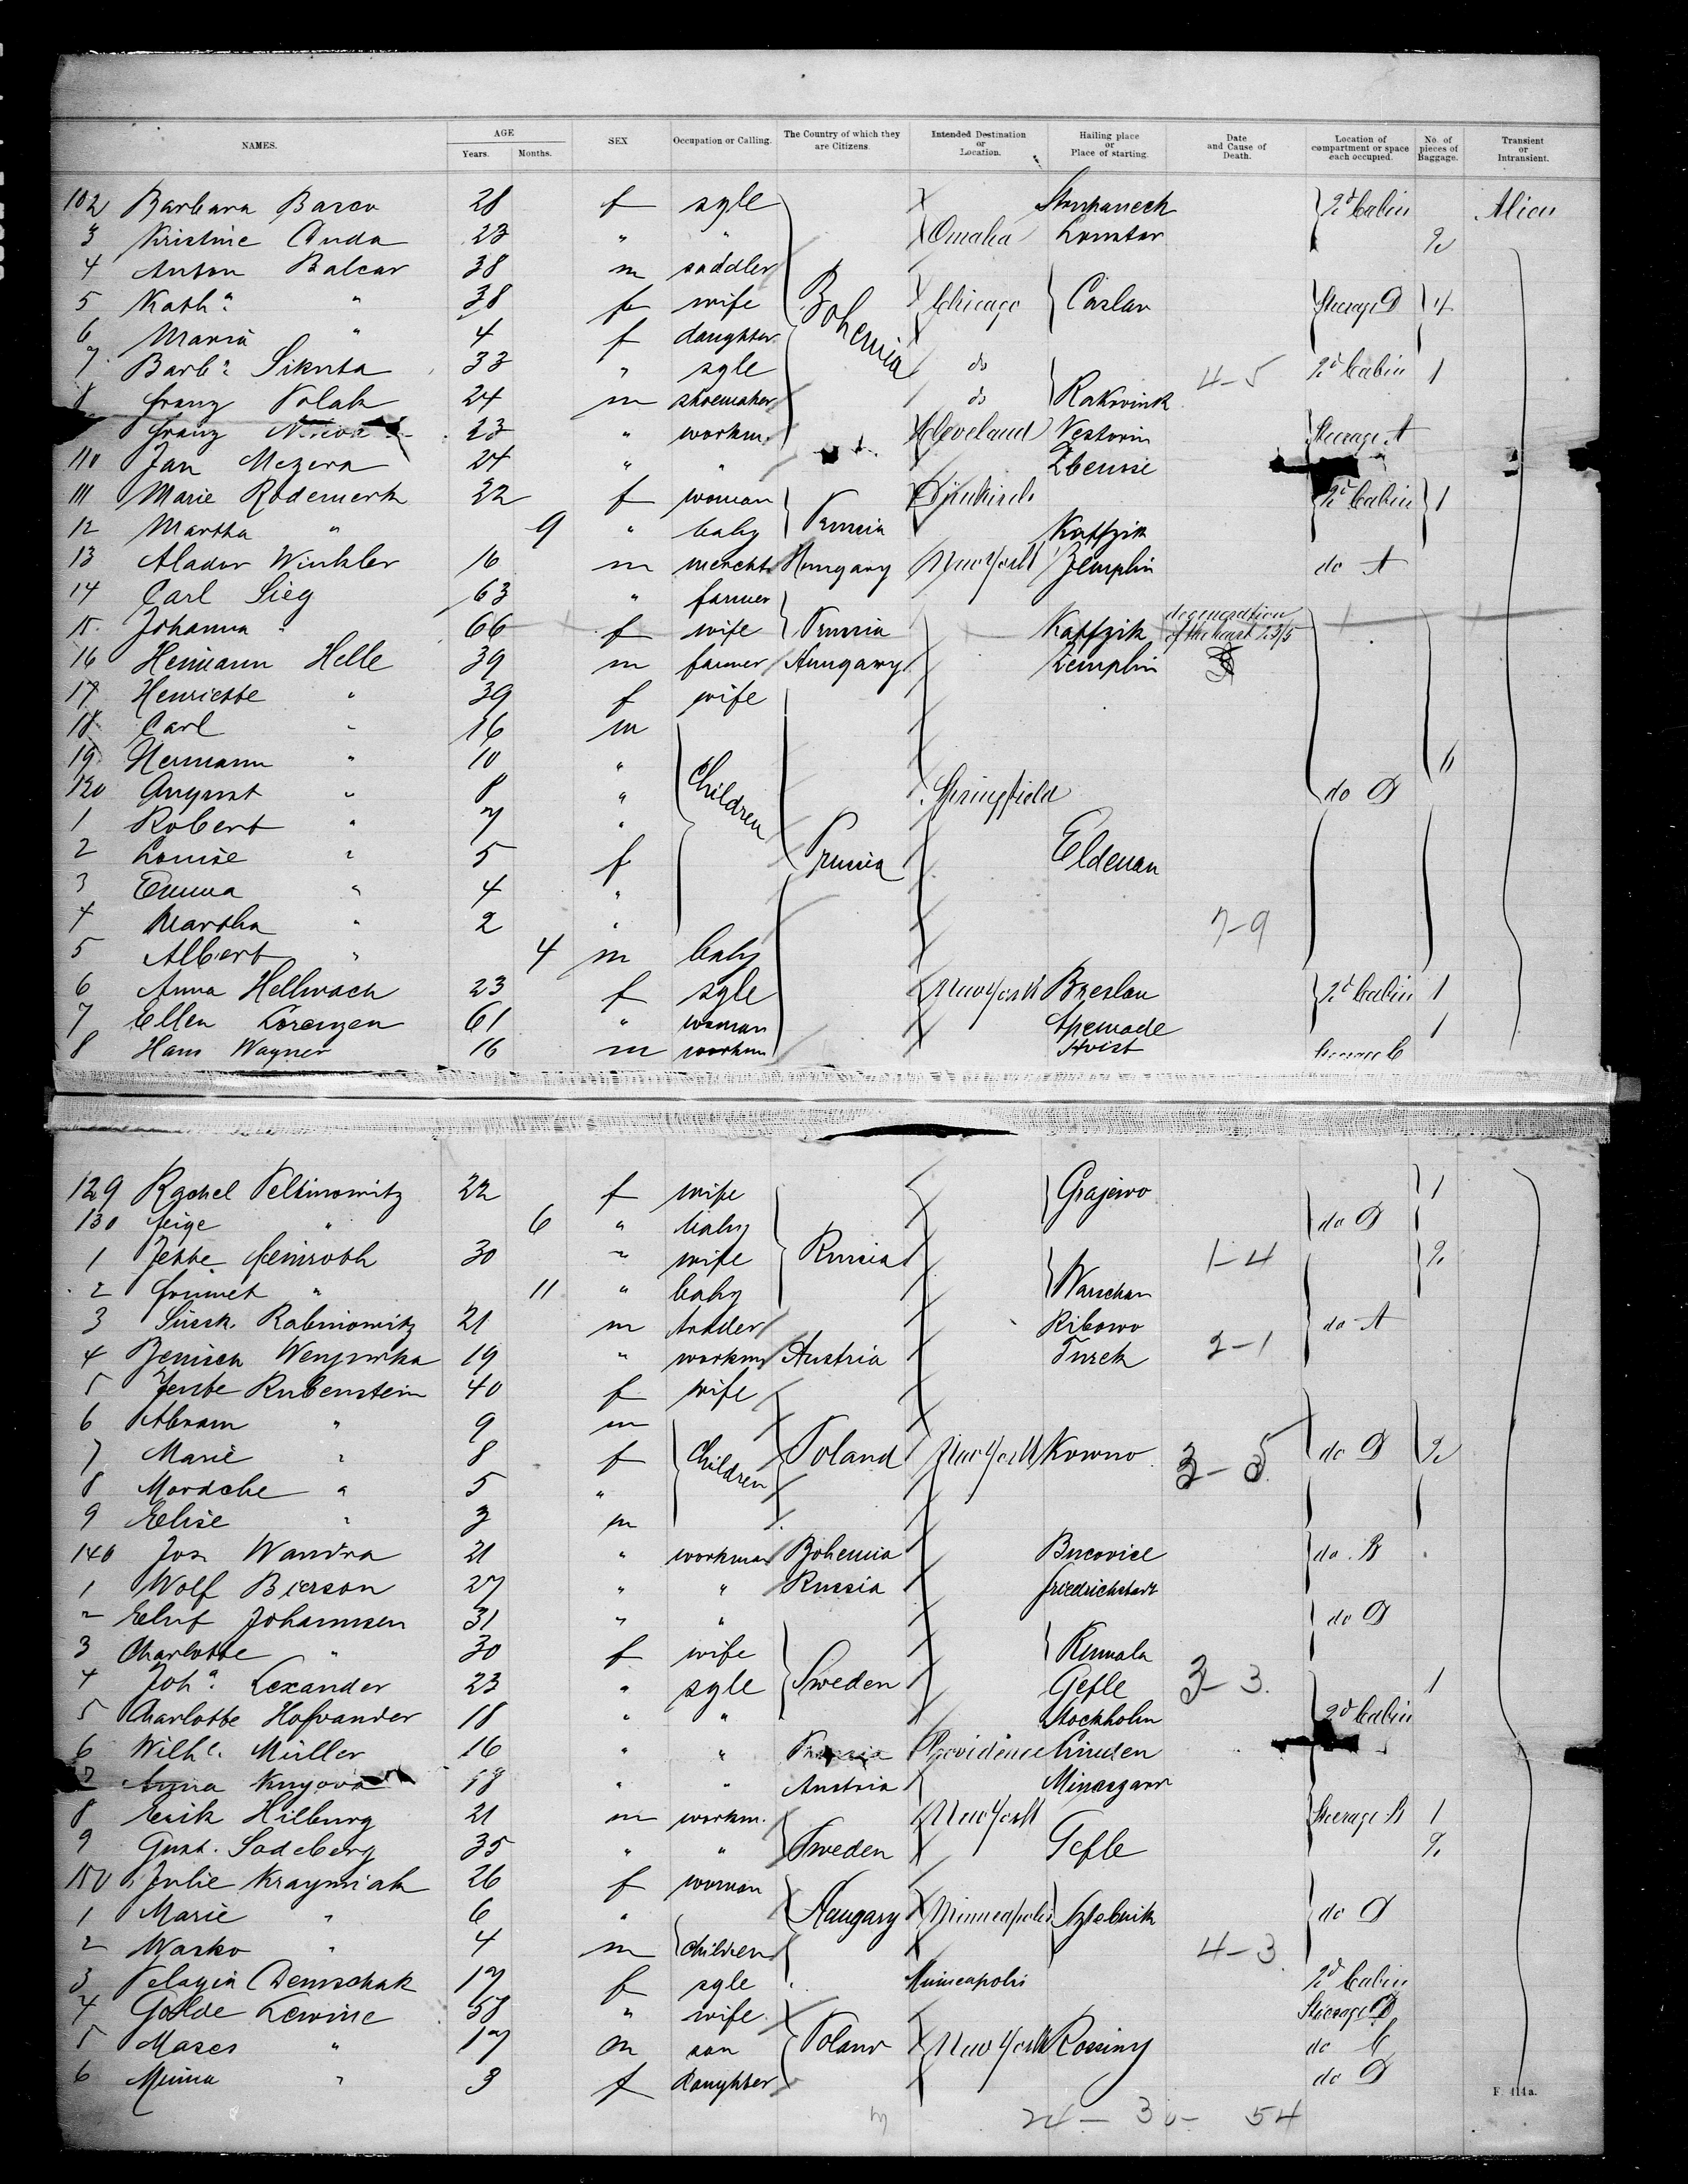 NAMES. AGE Years. Months. SEX Occupation or Calling. The Country of which they are Citizens. Intended Destination or Location. Hailing place or Place of starting. Date and Cause of Death. Location of compartment or space each occupied. No. of pieces of Baggage. Transient or Intransient.
102 Barbara Barco 28 f sgle 2d Cabin Alien
3 Kristine Cuda 23 " " Omaha 2
4 Anton Balcar 38 m saddler
5 Kath.a " 38 f wife Bohemia Chicago Caslav Steerage D 4
6 Maria " 4 f daughter
7 Barb.a Sikuta 33 " sgle do 2d Cabin 1
4-5
8 Franz Polak 24 m shoemaker do Rakovink
Franz 23 " workm. Cleveland Vestorin Steerage A
110 Jan Mezera 24 " "
111 Marie Rodemerk 22 f woman 2d Cabin 1
12 Martha " 9 " baby Prussia Kaffzik
13 Alador Winkler 16 m mercht. Hungary New York Zemplin do A
14 Carl Sieg 63 " farmer
15 Johanna " 66 f wife Prussia Kaffzik degeneration of the heart
16 Hermann Helle 39 m farmer Hungary Zemplin
17 Henriette " 39 f wife
18 Carl " 16 m
19 Hermann " 10 "
120 August " 8 " Children Springfield do D
1 Robert " 7 "
2 Louise " 5 f Prussia Eldenau
3 Emma " 4 "
4 Martha " 2 "
7-9
5 Albert " 4 m baby
6 Anna Hellwach 23 f sgle New York Breslau 2d Cabin 1
7 Ellen Lorenzen 61 " woman Apenrade 1
8 Hans Wagner 16 m workm Hvist Steerage C
129 Rachel Peltinowitz 22 f wife Grajewo 1
130 Feige " 6 " baby do D
1 Jette Feinroth 30 " wife Russia 1-4 2
2 " 11 " baby Warschau
3 Süssk. Rabinowitz 21 m trader Ribowo do A
4 19 " workm Austria Turek 2-1
5 Jente Rubenstein 40 f wife
6 Abram " 9 m
7 Marie " 8 f Children Poland New York Kowno 3-5 do D 2
8 Mordche " 5 "
9 Elise " 3 m
140 Jos. Wandra 21 " workman Bohemia Bucovice do B
1 Wolf Bierson 27 " " Russia Friedrichstadt
2 Johannsen 31 " " do D
3 Charlotte " 30 f wife Kumala
4 Joh.a Lexander 23 " sgle Sweden Gefle 3-3 1
5 Charlotte Hofvander 18 " " Stockholm 2d Cabin
6 Wilh.e Müller 16 " " Prussia Providence
7 Anna 18 " " Austria
8 Erik Hilburg 21 m workm. New York Steerage B 1
9 Gust. Sodeberg 35 " " Sweden Gefle 2
150 Julie Kraymiak 26 f woman
1 Marie " 6 " Hungary Minneapolis do D
2 Wasko " 4 m children
4-3
3 Pelagia Demschak 17 f sgle Minneapolis 2d Cabin
4 Golde Lewine 58 " wife Steerage D
5 Moses " 17 m son Poland New York Rossiny do C
6 Minna " 3 f daughter do D
F. 414a.
24 - 30 - 54